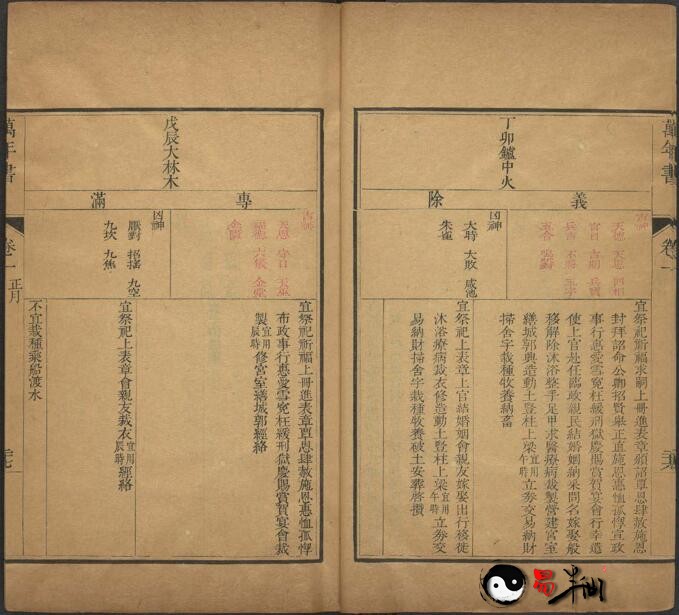 萬年書
卷一
丁卯鑪中火
義
除
吉神
天德 天恩 四相
官日 吉期
兵吉 不將
五合 鳴吠對
凶神
大時 大敗 咸池
朱雀
宜祭祀祈福求嗣上冊進表章頒詔覃恩肆赦施恩
封拜詔命公卿招賢舉正直施恩惠恤孤惸宣政
事行惠愛雪寃枉緩刑獄慶賜賞賀宴會行幸遣
使上官赴任臨政親民結婚姻納采問名嫁娶般
移解除沐浴整手足甲求醫療病裁製營建宮室
繕城郭興造動土豎柱上梁宜用午時立券交易納財
掃舍宇栽種牧養納畜
宜祭祀上表章上官結婚姻會親友嫁娶出行移徙
沐浴療病裁衣修造動土豎柱上梁宜用午時立券交
易納財掃舍宇栽種牧養破土安葬啓攢
戊辰大林木
專
滿
吉神
天恩 守日 天巫
福德 六儀 金堂
金匱
凶神
厭對 招搖 九空
九坎 九焦
宜祭祀祈福上冊進表章覃恩肆赦施恩惠恤孤惸
布政事行惠愛雪寃枉緩刑獄慶賜賞賀宴會裁
製宜用辰時修宮室繕城郭經絡
宜祭祀上表章會親友裁衣宜用辰時經絡
不宜栽種乘船渡水
萬年書
卷一
正月
易